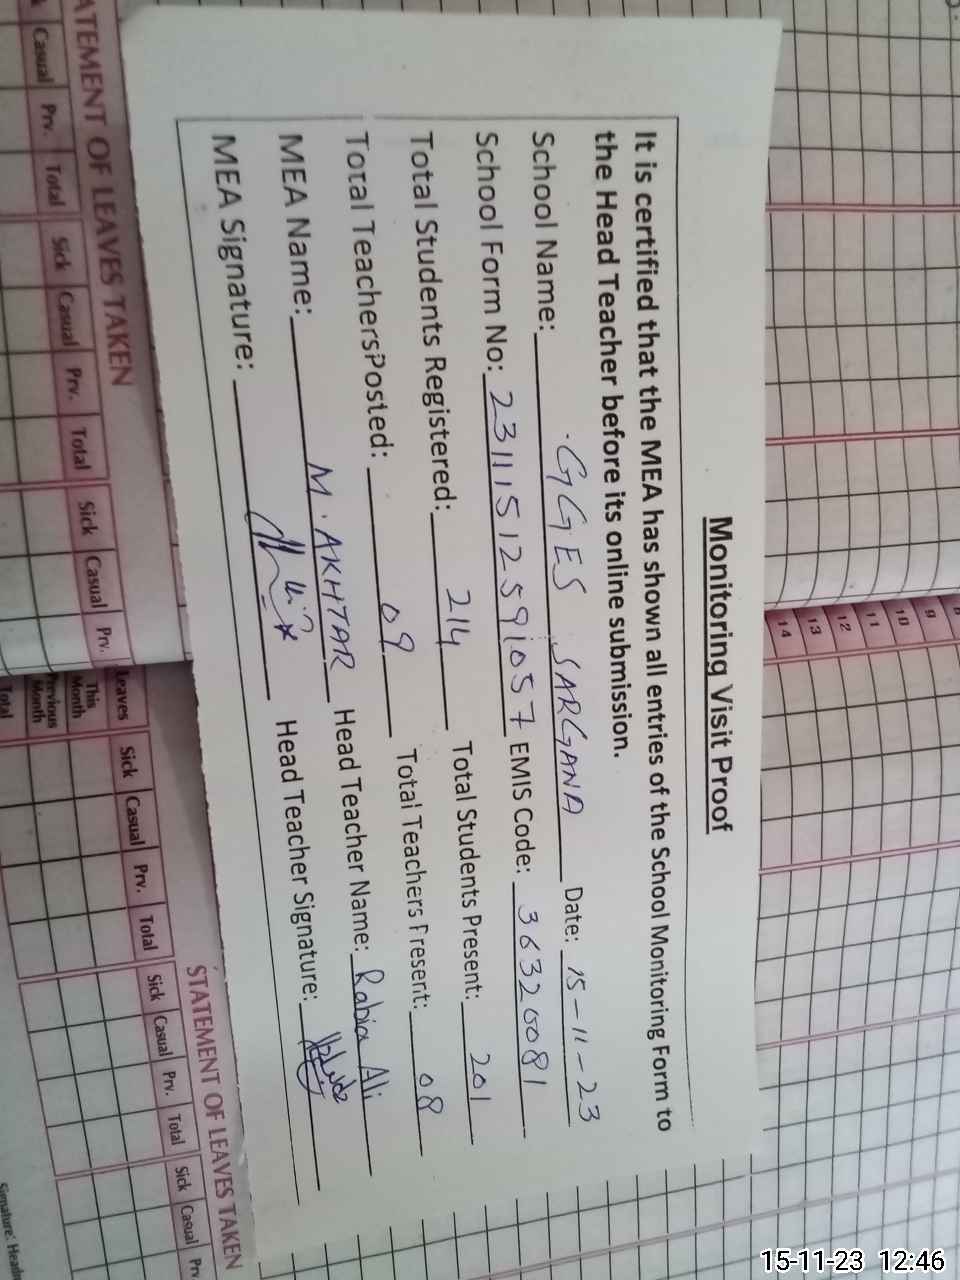 Monitoring Visit Proof
It is certified that the MEA has shown all entries of the School Monitoring Form to
the Head Teacher before its online submission.
School Name: GGES SARGANA Date: 15-11-23
School Form No: 231115125591057 EMIS Code: 36320081
Total Students Registered: 214 Total Students Present: 201
Total TeachersPosted: 09 Total Teachers Present: 08
MEA Name: M. AKHTAR Head Teacher Name: Rabia Ali
MEA Signature: Head Teacher Signature:
STATEMENT OF LEAVES TAKEN
Casual Prv. Total Sick Casual Prv. Total Sick Casual Prv.
8
9
10
11
12
13
14
STATEMENT OF LEAVES TAKEN
Leaves Sick Casual Prv. Total Sick Casual Prv. Total Sick Casual Prv
This Month
Previous Month
Total
Signature: Head
15-11-23 12:46